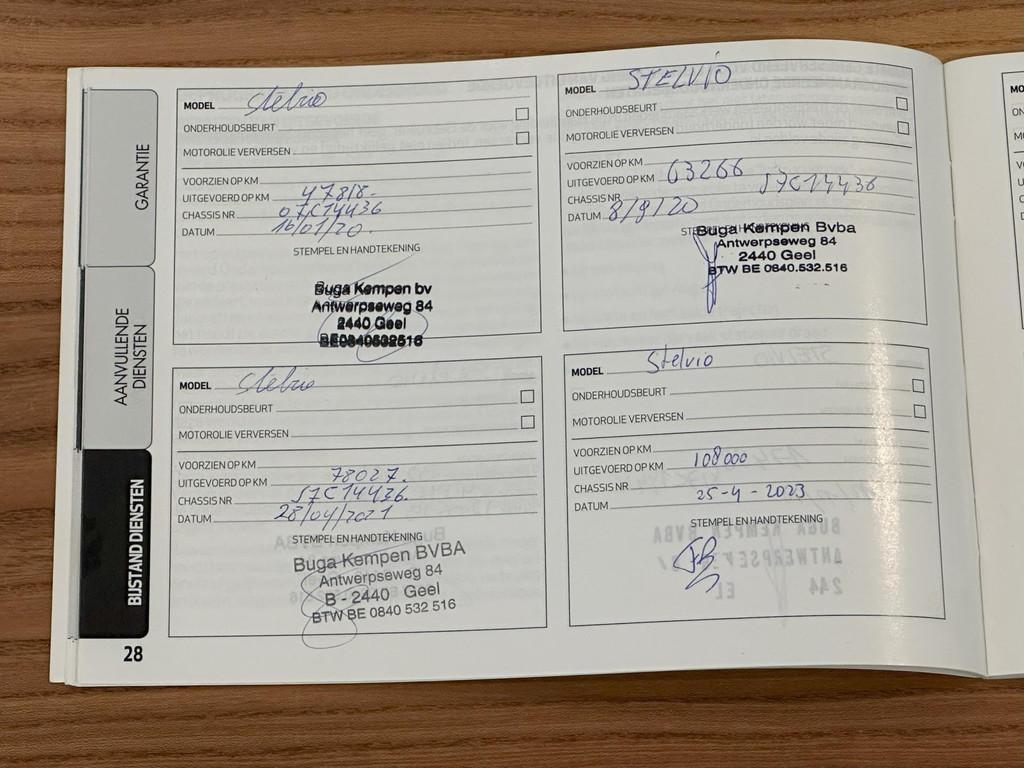 GARANTIE
AANVULLENDE
DIENSTEN
BIJSTAND DIENSTEN
28
MODEL Stelvio
ONDERHOUDSBEURT
MOTOROLIE VERVERSEN
VOORZIEN OP KM
UITGEVOERD OP KM 47818-
CHASSIS NR 07C14436
DATUM 16/01/20.
STEMPEL EN HANDTEKENING
Buga Kempen bv
Antwerpseweg 84
2440 Geel
BE0840532516
MODEL STELVIO
ONDERHOUDSBEURT
MOTOROLIE VERVERSEN
VOORZIEN OP KM
UITGEVOERD OP KM 63266
CHASSIS NR J7C14436
DATUM 8/9/20
Buga Kempen Bvba
Antwerpseweg 84
2440 Geel
BTW BE 0840.532.516
MODEL Stelvio
ONDERHOUDSBEURT
MOTOROLIE VERVERSEN
VOORZIEN OP KM
UITGEVOERD OP KM 78027.
CHASSIS NR J7C14436.
DATUM 28/04/2021
STEMPEL EN HANDTEKENING
Buga Kempen BVBA
Antwerpseweg 84
B - 2440 Geel
BTW BE 0840 532 516
MODEL Stelvio
ONDERHOUDSBEURT
MOTOROLIE VERVERSEN
VOORZIEN OP KM
UITGEVOERD OP KM 108000
CHASSIS NR
DATUM 25-4-2023
STEMPEL EN HANDTEKENING